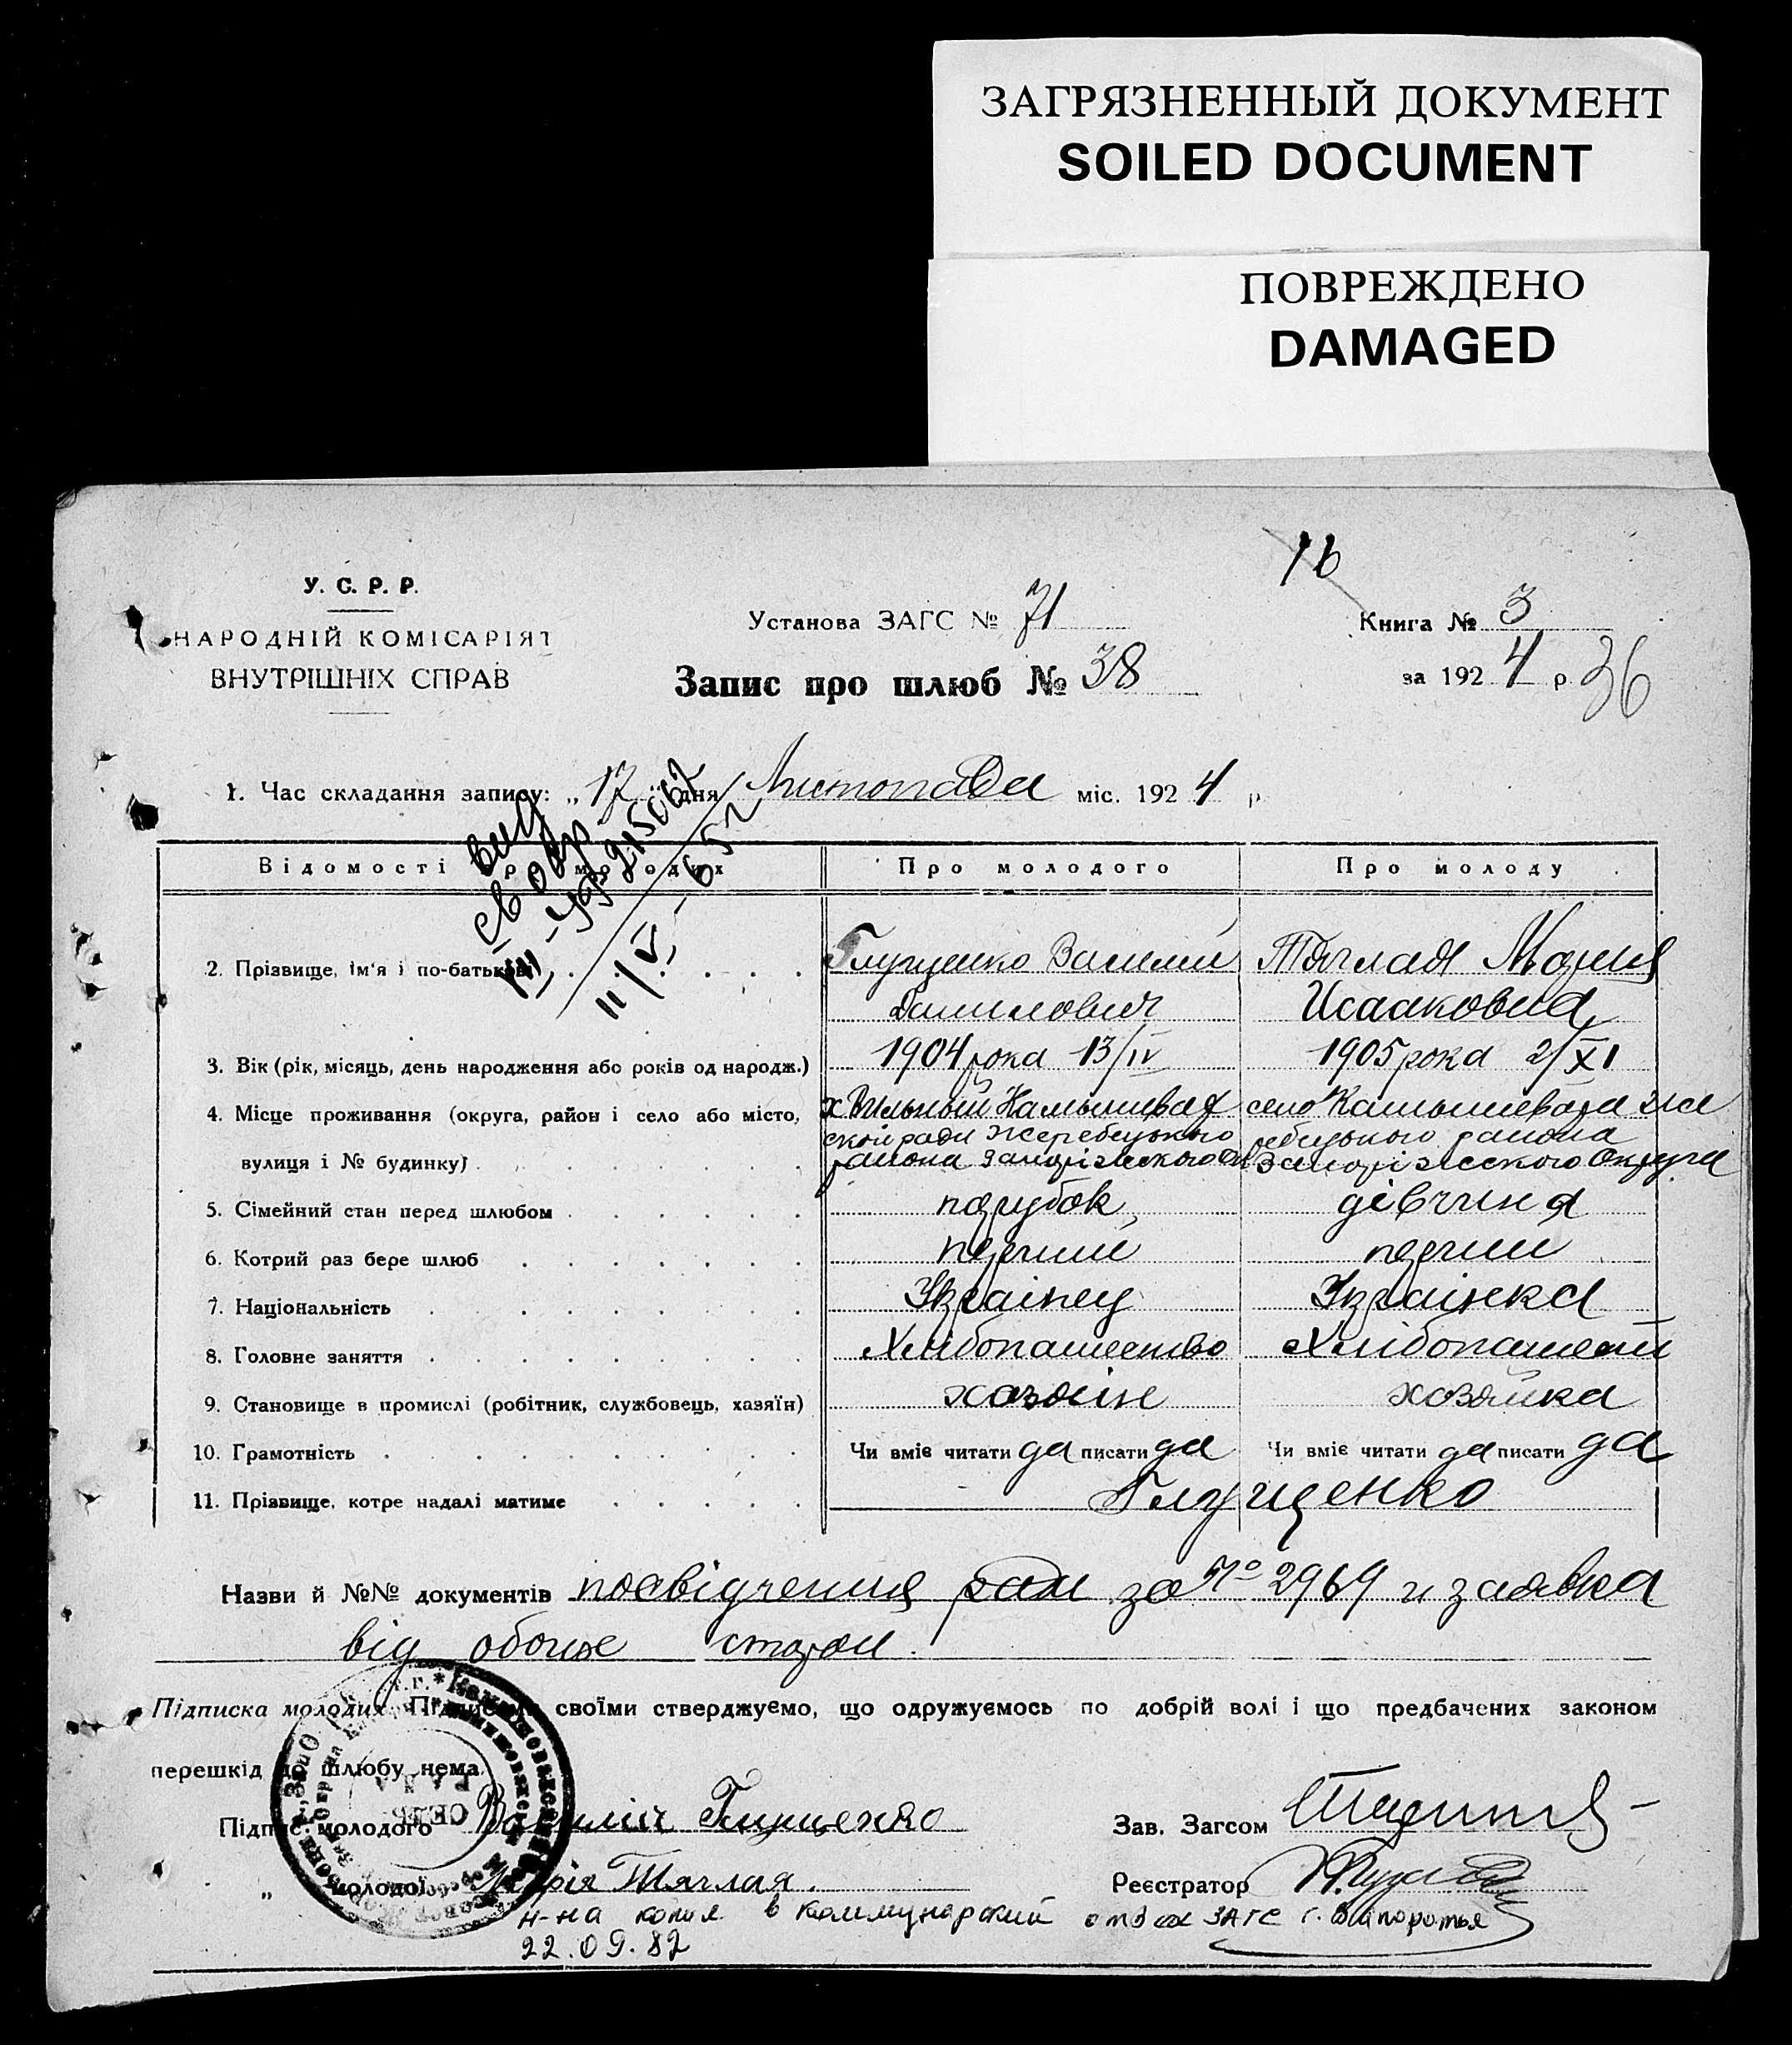 ЗАГРЯЗНЕННЫЙ ДОКУМЕНТ
SOILED DOCUMENT
ПОВРЕЖДЕНО
DAMAGED
16
У. С. Р. Р.
НАРОДНІЙ КОМІСАРІЯТ
ВНУТРІШНІХ СПРАВ
Установа ЗАГС № 71
Запис про шлюб № 38
Книга № 3
за 1924 р. 36
1. Час складання запису: „17" дня Листопада міс. 1924 р.
вид
свобр
III-УР 215067
11/V-652
Відомості про молодих Про молодого Про молоду
2. Прізвище, ім'я і по-батькові Глущенко Василий Тяглая Мария
Данилович Исааковна
3. Вік (рік, місяць, день народження або років од народж.) 1904 рока 13/IV 1905 рока 2/XI
4. Місце проживання (округа, район і село або місто, х Вільный Камышеват село Камышевата Же
ской ради Жеребецького ребецького района
вулиця і № будинку) района Запоріжского Ок Запоріжского Округа
5. Сімейний стан перед шлюбом парубок дівчина
6. Котрий раз бере шлюб перший перший
7. Національність Українец Українка
8. Головне заняття Хлібопашество Хлібопашест
9. Становище в промислі (робітник, службовець, хазяїн) хозяін хозяйка
10. Грамотність Чи вміє читати да писати да Чи вміє читати да писати да
11. Прізвище, котре надалі матиме Глущенко
Назви й №№ документів посвідчения ради за № 2969 и заявка
від обоих сторон.
Підписка молодих. Підписами своїми стверджуємо, що одружуємось по добрій волі і що предбачених законом
перешкід до шлюбу нема.
Підпис молодого Василій Глущенко Зав. Загсом
„ молодої Марія Тяглая. Реєстратор
н-на копия в Коммунарский отдел ЗАГС г. Запорожья
22.09.82